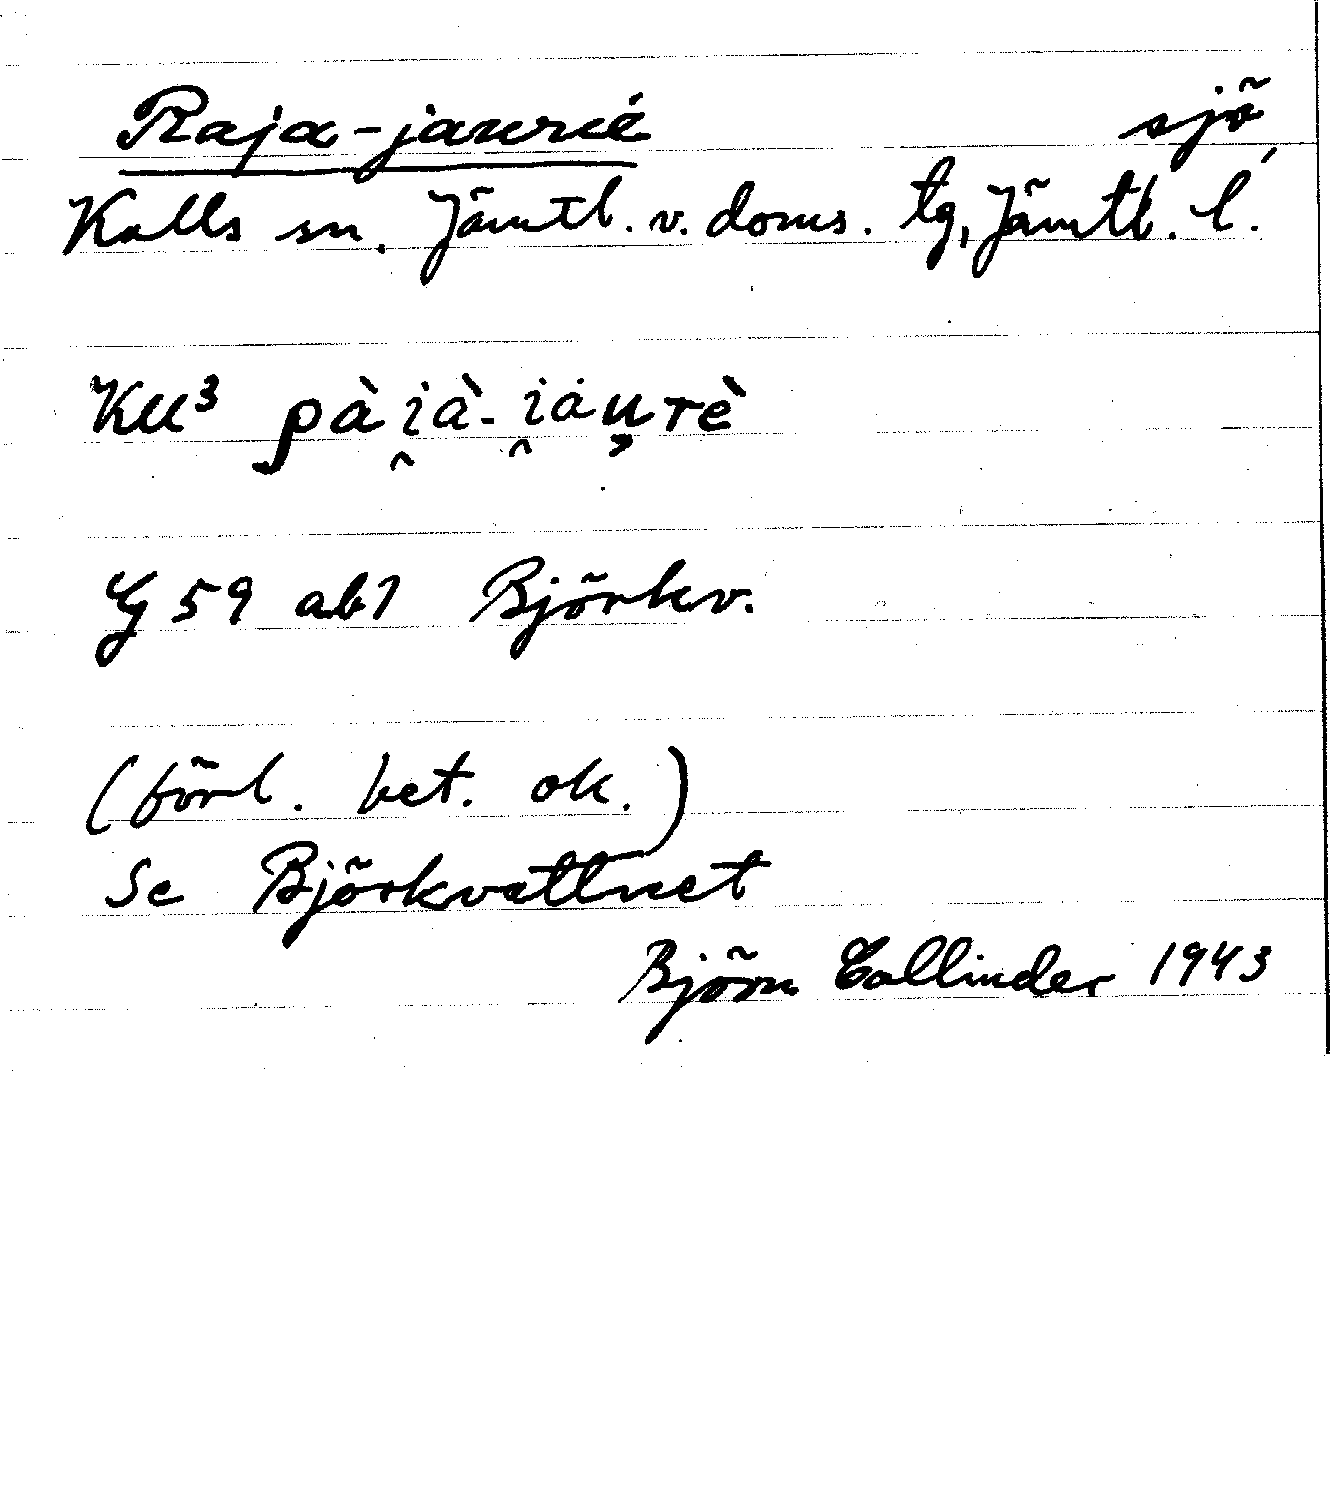 Raja-jaurie sjö,
Kalls sn. Jämtl. v. doms. tg, Jämtl. l.
KU³ ρài̯à-i̯àu̯rè
G 59 ab1 Björkv.
(förl. bet. ok.)
Se Björkvattnet
Björn Collinder 1943